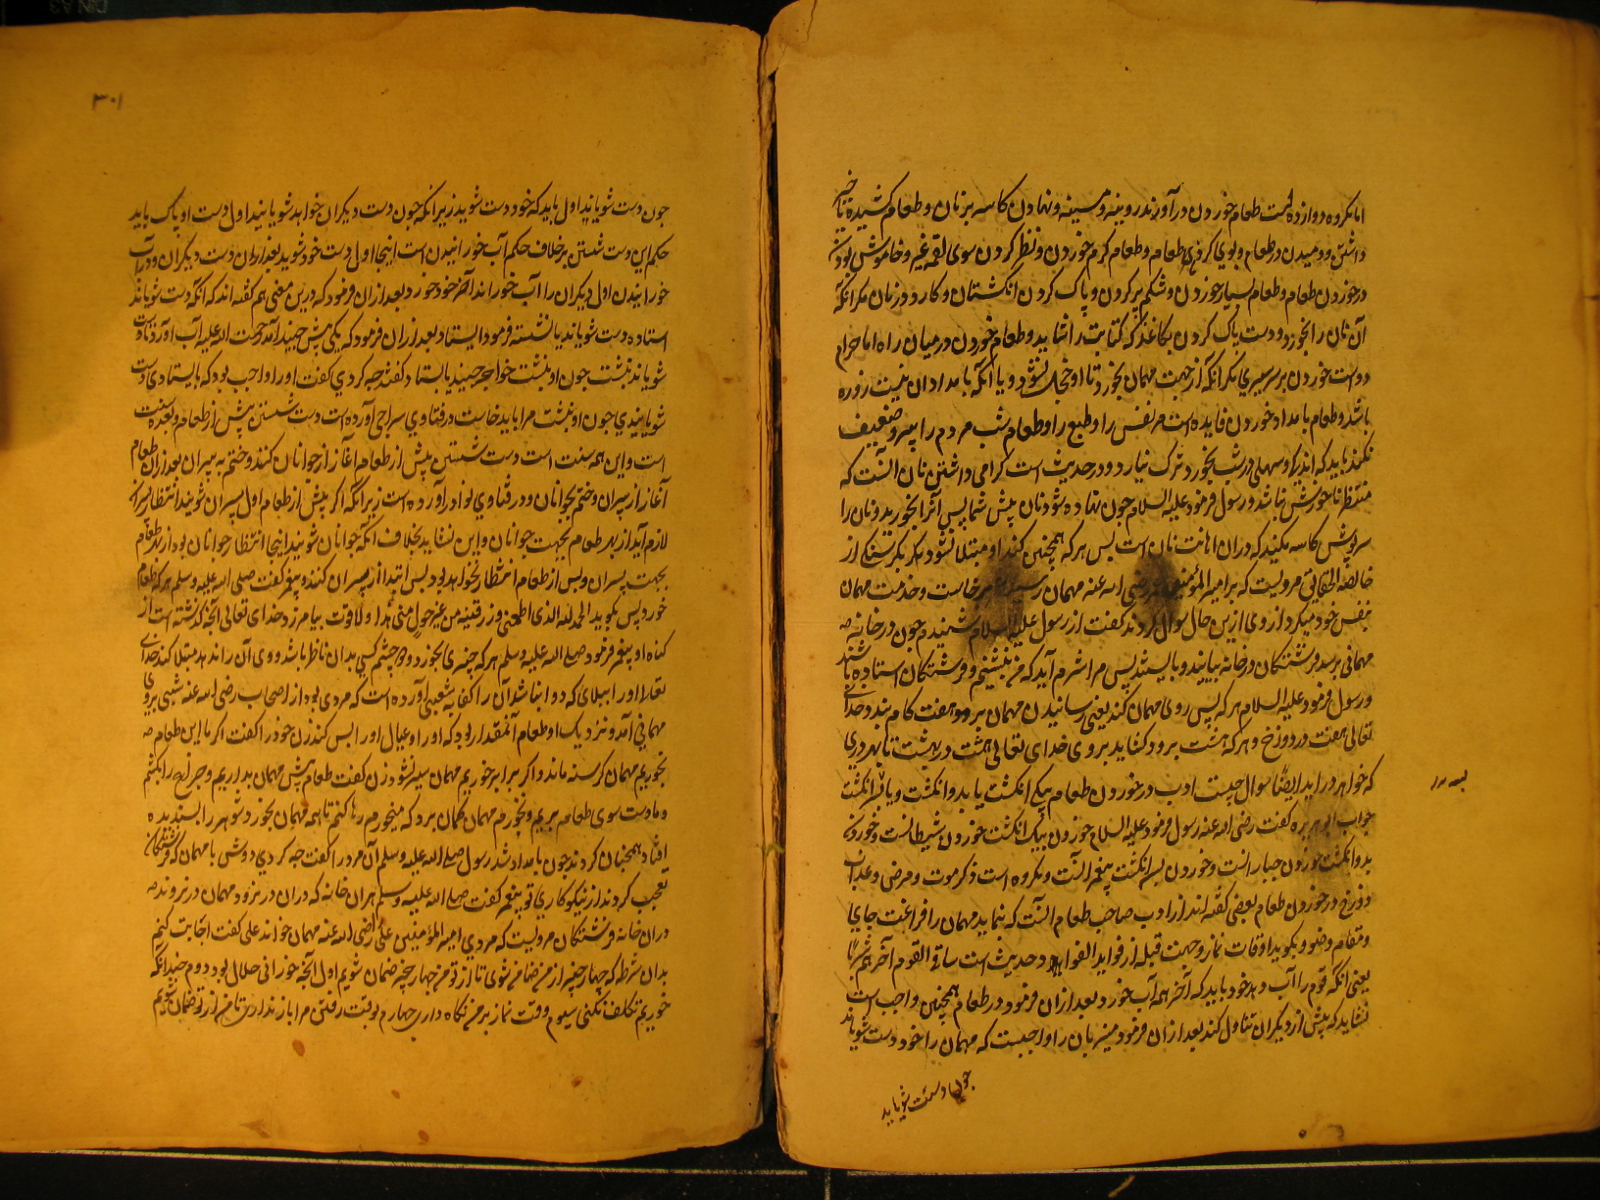 اما مکروه دوازده است طعام خوردن در آوند روینه و مسینه و نهادن کاسه بر نان و طعام کشیده تا خیر
داشتن و دمیدن در طعام و بوی کردن طعام و طعام گرم خوردن و نظر کردن سوی لقمه غیر و خاموش بودن
در خوردن طعام و طعام بسیار خوردن و شکم پر کردن و پاک کردن انگشتان و کارد در نان مگر آنکه
آن نان را بخورد و دست پاک کردن بکاغذ که کتابت را شاید و طعام خوردن در میان راه اما حرام
دو است خوردن بر سر سیری مگر آنکه از جهت مهمان بخورد تا او خجل نشود و یا آنکه بامدادان نیت روزه
باشد و طعام بامداد خوردن فایده است مر نفس را و طبع را و طعام شب مردم را پیر و ضعیف
نکند باید که اندک و سهل در شب بخورد ترک نیارد و در حدیث است گرامی داشتن نان آنست که
منتظر ناخورش نباشد و رسول فرمود علیه السلام چون نهاده شود نان پیش شما پس آنرا بخورید و نان را
سرپوش کاسه نکنید که در آن اهانت نان است پس هر که همچنین کند او مبتلا نشود مگر بگرسنگی از
خالصة الحقایق مرویست که بر امیر المؤمنین رضی الله عنه مهمان رسید برخاست و خدمت مهمان
بنفس خود میکرد او روی ازین حال سوال کردند گفت از رسول علیه السلام شنیدم چون در خانه
مهمانی برسد فرشتگان در خانه بیایند و بایستند پس مرا شرم آید که من بنشینم و فرشتگان استاده باشند
و رسول فرمود علیه السلام هر که پس روی مهمان کند یعنی رسانیدن مهمان برود هفت کام ببندد خدای
تعالی هفت در دوزخ و هر که هشت برود کشاید بروی خدای تعالی هشت در بهشت تا بهر دری
که خواهد در آید ایضا سوال چیست ادب در خوردن طعام بیک انگشت یا بدو انگشت و یا بسه انگشت
جواب ابو هریره گفت رضی الله عنه رسول فرمود علیه السلام خوردن بیک انگشت خوردن شیطانست و خوردن
بدو انگشت خوردن جبارانست و خوردن بسه انگشت پیغمبرانست و مکروه است ذکر موت و مرض و عذاب
دوزخ در خوردن طعام بعضی گفته اند از ادب صاحب طعام آنست که بنماید مهمان را فراغت جای
و مقام وضو و بگوید اوقات نماز و جهت قبله از فواید الفواید و حدیث است ساقی القوم آخرهم شربا
یعنی آنکه قوم را آب دهد خود باید که آخر همه آب خورد بعد ازان فرمود در طعام همچنین واجب است
نشاید که پیش از دیگران تناول کند بعد ازان فرمود میزبان را واجبست که مهمان را خود دست شویاند
چون دست شویانید
۳۰۱
چون دست شویانید اول باید که خود دست شوید زیرانکه چون دست دیگران خواهد شویانید اول دست او پاک باید
حکم این دست شستن بر خلاف حکم آب خورانیدن است اینجا اول دست خود شوید بعد ازان دست دیگران و در آب
خورانیدن اول دیگران را آب خوراند آخر خود خورد بعد ازان فرمود که درین معنی هم گفته اند که آنکه دست شویاند
استاده دست شویاند یا نشسته فرمود ایستاده بعد ازان فرمود که یکی پیش جنید آمد رحمت الله علیه آب آورد تا دست
شویاند بنشست چون او بنشست خواجه جنید بایستاد گفتند چه کردی گفت او را واجب بود که بایستادی و دست
شویانیدی چون او بنشست مرا باید خاست در فتاوی سراجی آورده است دست شستن پیش از طعام و بعده سنت
است و این همه سنت است دست شستن پیش از طعام آغاز از جوانان کنند و ختم به پیران بعد از آن طعام
آغاز از پیران و ختم بجوانان و در فتاوی نوادر آورده است زیرانکه اگر پیش از طعام اول پیران شویند انتظار پیران
لازم آید از بهر طعام بجهت جوانان و این نشاید بخلاف آنکه جوانان شویند اینجا انتظار جوانان بود از بهر طعام
بجهت پیران و پس از طعام انتظار نخواهد بود پس ابتدا از پیران کنند و پیغمبر گفت صلی الله علیه وسلم هر که طعام
خورد پس بگوید الحمد لله الذی اطعمنی و رزقنیه من غیر حول منی هذا ولا قوت بیامرزد خدای تعالی آنچه گذشته است از
گناه او پیغمبر فرمود صلی الله علیه وسلم هر که چیزی بخورد و دو چشم کسی بدان ناظر باشد و وی آن را ندهد مبتلا کند خدای
تعالی او را ببلای که دوا نباشد آن را کفایه شعبی آورده است که مردی بود از اصحاب رضی الله عنه شبی بروی
مهمانی آمد و نزدیک او طعام آنمقدار بود که او را و عیال او را بس کند زن خود را گفت اگر ما این طعام
بخوریم مهمان گرسنه ماند و اگر برابر خوریم مهمان سیر نشود زن گفت طعام پیش مهمان بداریم و چراغ را بکشم
و ما دست سوی طعام بریم و نخوریم مهمان گمان برد که میخوریم رها کنیم تا همه مهمان بخورد شوهر را پسندیده
افتاد همچنان کردند چون بامداد شد رسول صلی الله علیه وسلم آن مرد را گفت چه کردی دوش با مهمان که فرشتگان
تعجب کردند از نیکوکاری تو پیغمبر گفت صلی الله علیه وسلم هر آن خانه که دران در نرود مهمان در نروند
دران خانه فرشتگان مرویست که مردی امیر المؤمنین علی رضی الله عنه مهمان خواند علی گفت اجابت کنم
بدان شرط که چهار چیز از من ضامن شوی تا از تو من چهار چیز ضمان شویم اول آنچه خورانی حلال بود دوم چندانکه
خوریم تکلف نکنی سیوم وقت نماز بر من نگاه داری چهارم بوقت رفتن مرا باز نداری تا من از تو ضمان شویم